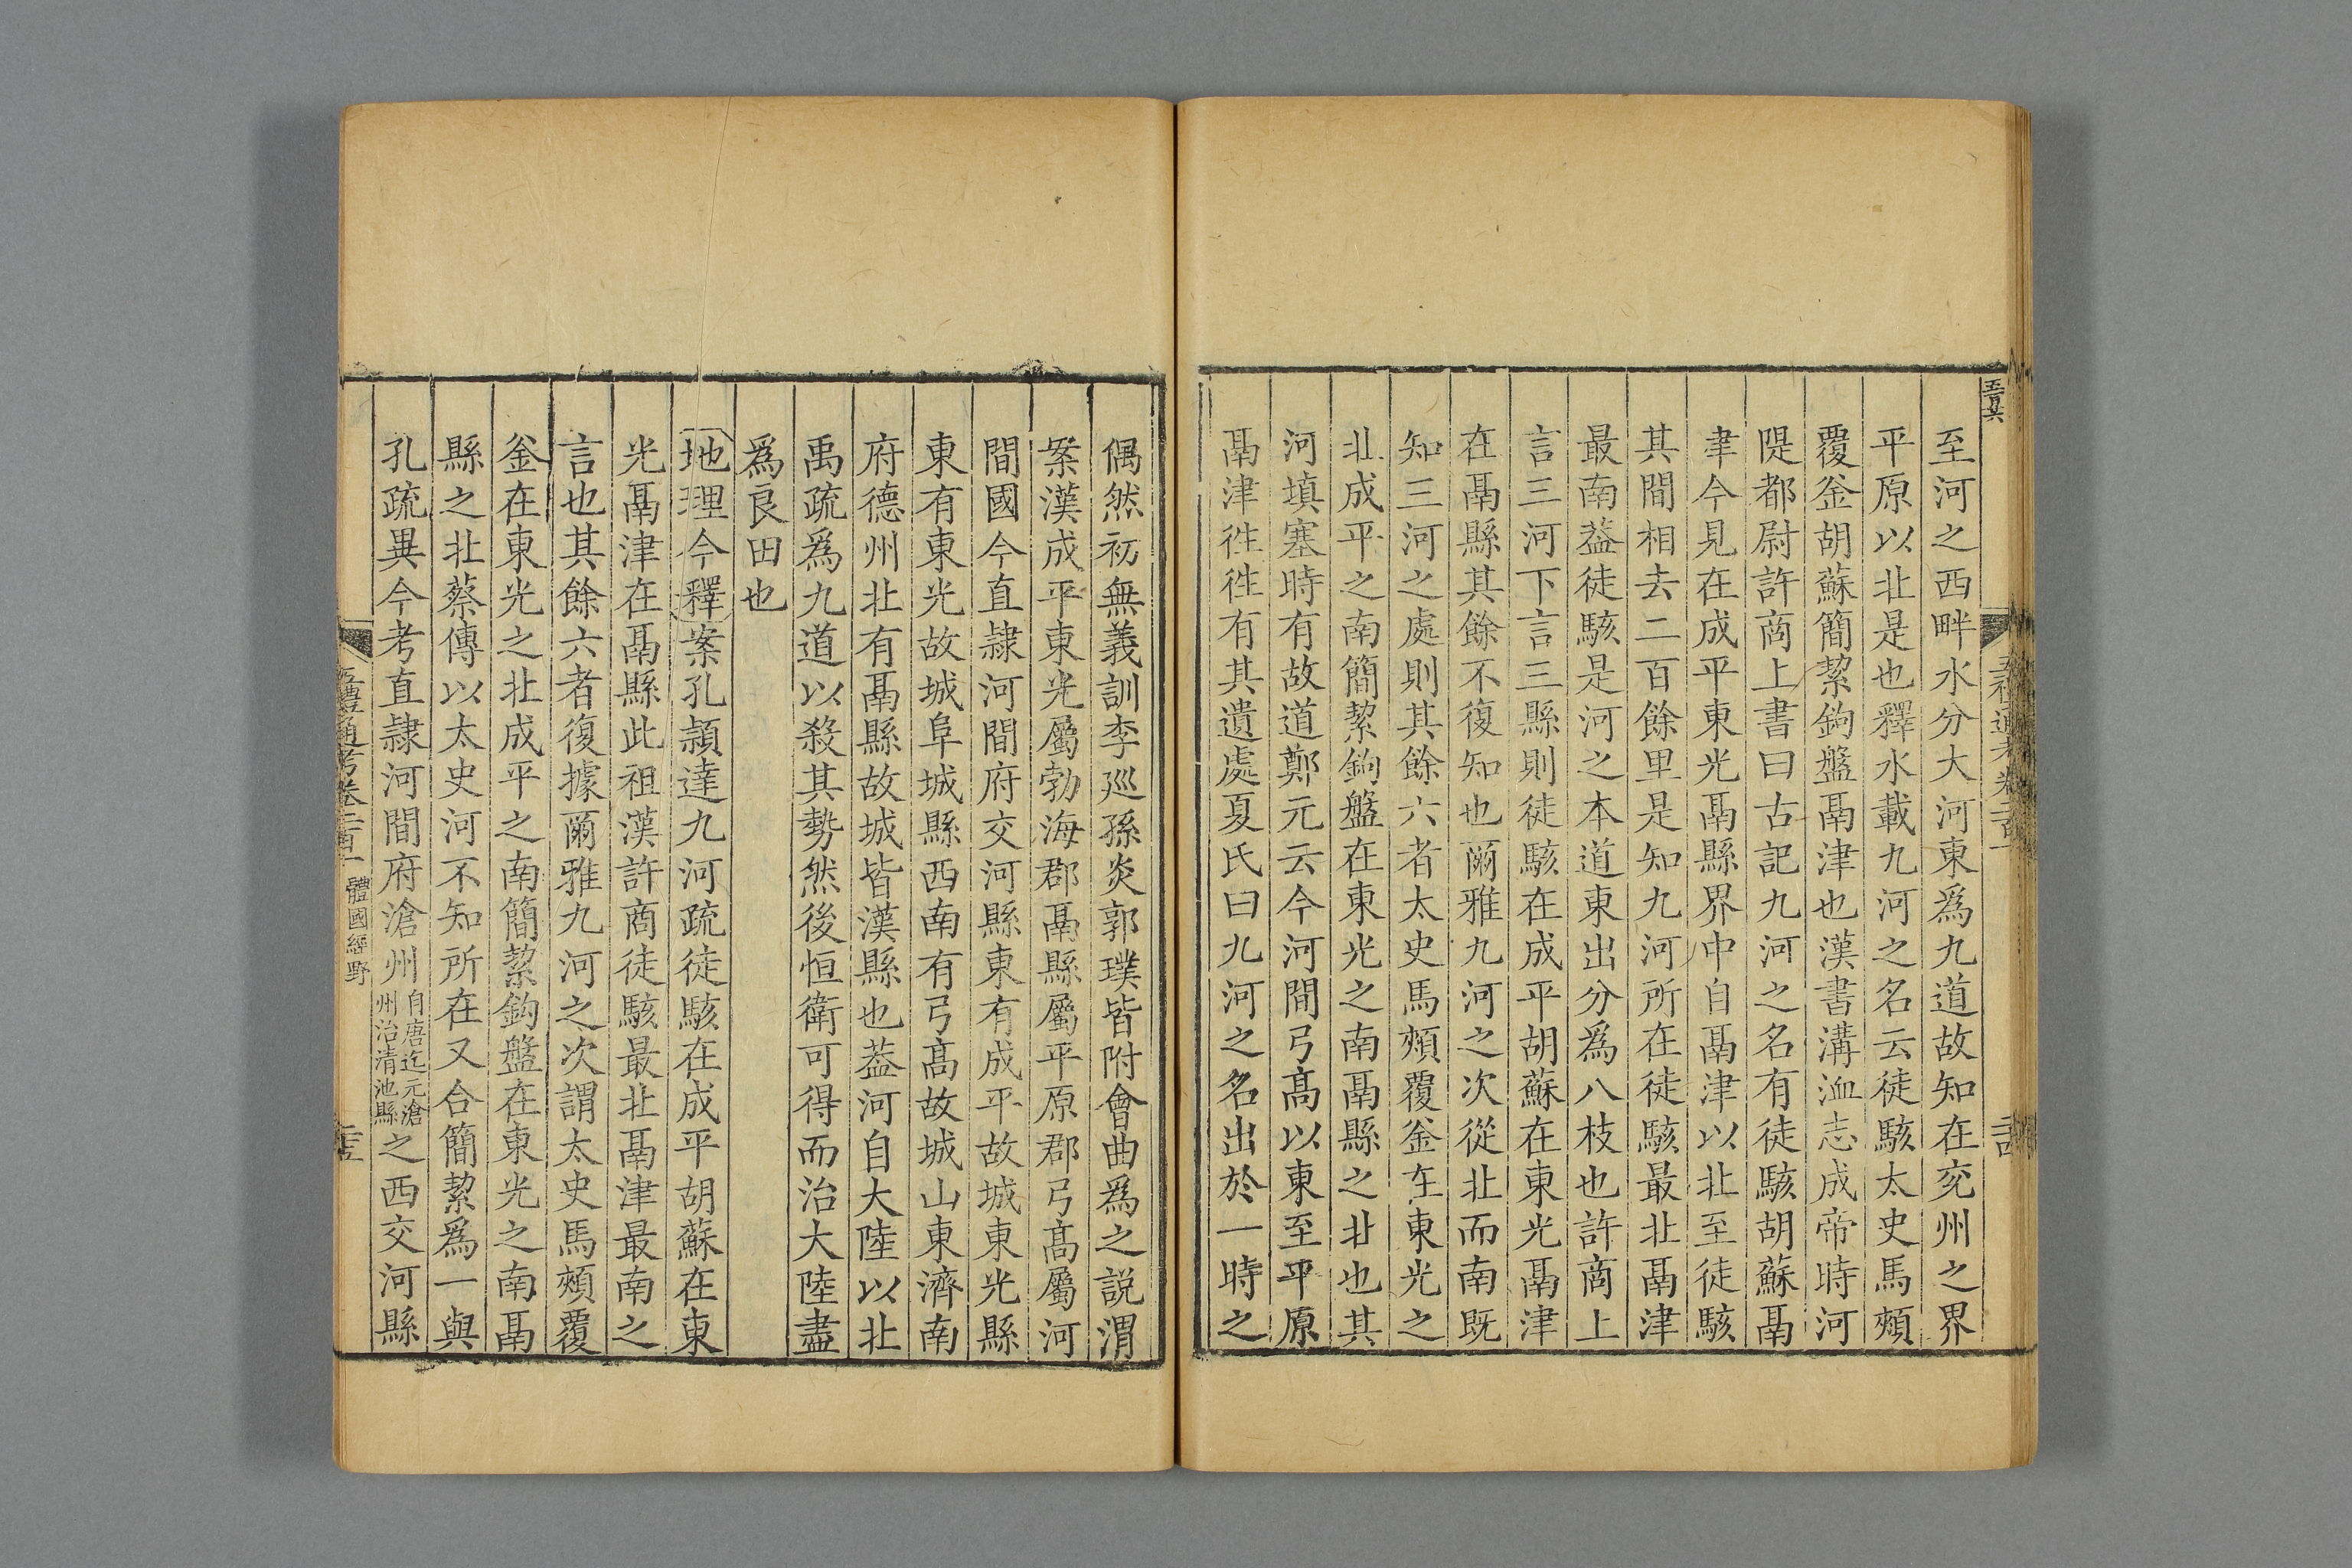 至河之西畔水分大河東爲九道故知在兖州之界
平原以北是也釋水載九河之名云徒駭太史馬頰
覆釜胡蘇簡絜鉤盤鬲津也漢書溝洫志成帝時河
隄都尉許商上書曰古記九河之名有徒駭胡蘇鬲
津今見在成平東光鬲縣界中自鬲津以北至徒駭
其間相去二百餘里是知九河所在徒駭最北鬲津
最南葢徒駭是河之本道東出分爲八枝也許商上
言三河下言三縣則徒駭在成平胡蘇在東光鬲津
在鬲縣其餘不復知也爾雅九河之次從北而南既
知三河之處則其餘六者太史馬頰覆釜在東光之
北成平之南簡絜鉤盤在東光之南鬲縣之北也其
河填塞時有故道鄭元云今河間弓高以東至平原
鬲津徃徃有其遺處夏氏曰九河之名出於一時之
偶然初無義訓李廵孫炎郭璞皆附會曲爲之説渭
案漢成平東光屬勃海郡鬲縣屬平原郡弓高屬河
間國今直隷河間府交河縣東有成平故城東光縣
東有東光故城阜城縣西南有弓高故城山東濟南
府德州北有鬲縣故城皆漢縣也葢河自大陸以北
禹疏爲九道以殺其勢然後恒衛可得而治大陸盡
爲良田也
地理今釋案孔頴達九河疏徒駭在成平胡蘇在東
光鬲津在鬲縣此祖漢許商徒駭最北鬲津最南之
言也其餘六者復據爾雅九河之次謂太史馬頰覆
釜在東光之北成平之南簡絜鉤盤在東光之南鬲
縣之北蔡傳以太史河不知所在又合簡絜爲一與
孔疏異今考直隷河間府滄州自唐迄元滄州治清池縣之西交河縣
五禮通考卷二百一 體國經野